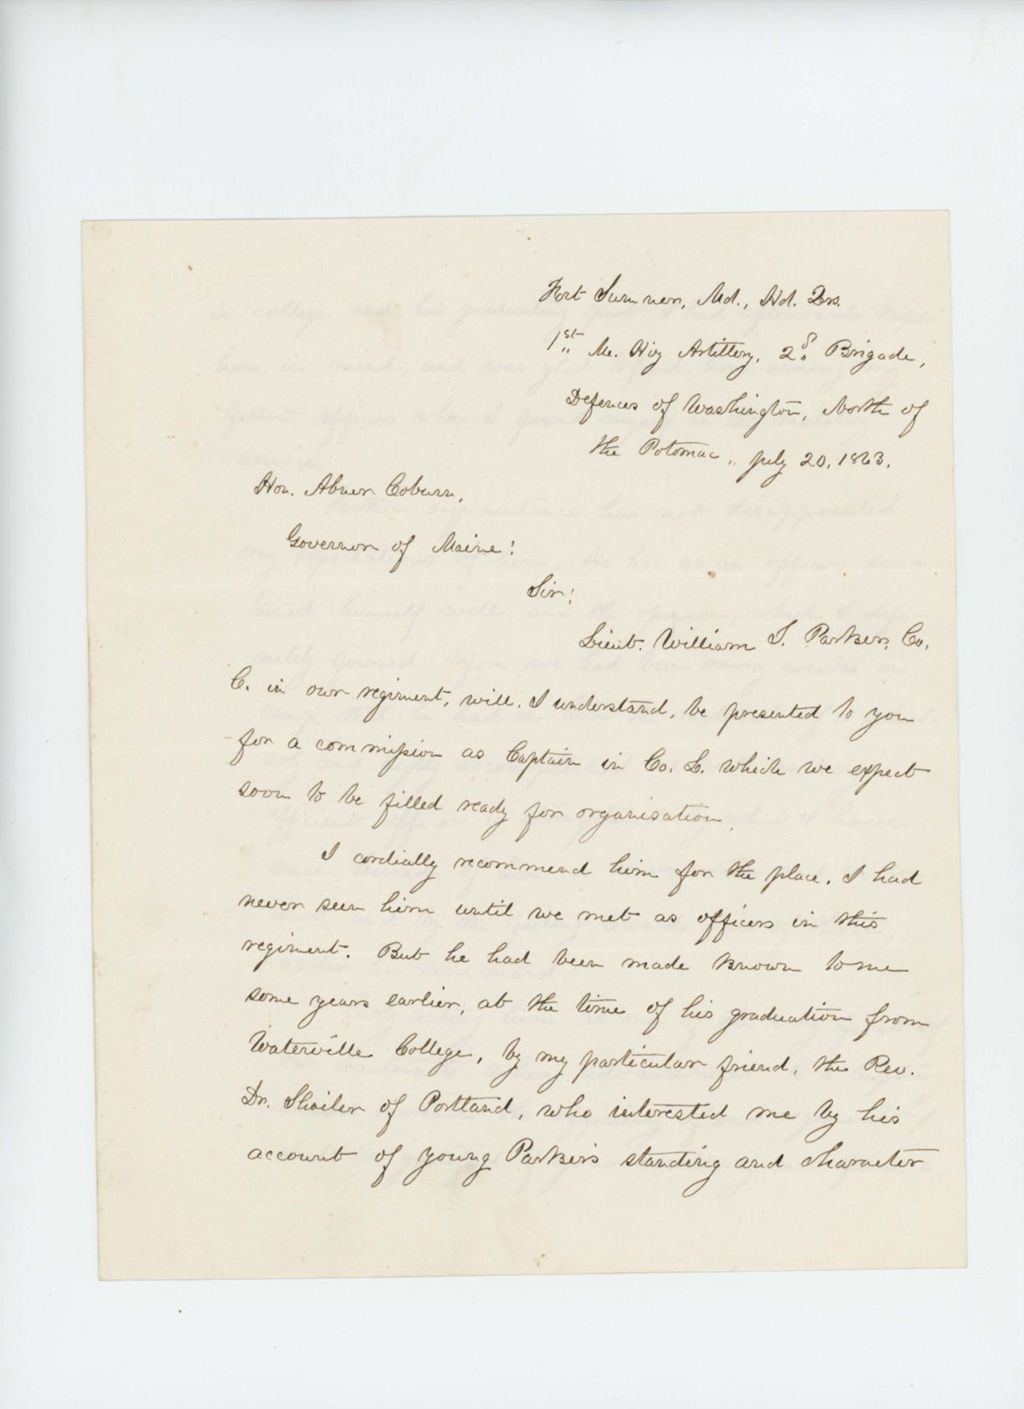 Fort Sumner, Md., Hd. Qrs.
1st Me. Hvy Artillery, 2d Brigade,
Defences of Washington, North of
the Potomac, July 20, 1863.
Hon. Abner Coburn,
Governor of Maine!
Sir;
Lieut. William S. Parker, Co.
C. in our regiment, will, I understand, be presented to you
for a commission as Captain in Co. L. which we expect
soon to be filled ready for organisation.
I cordially recommend him for the place. I had
never seen him until we met as officers in this
regiment. But he had been made known to me
some years earlier, at the time of his graduation from
Waterville College, by my particular friend, the Rev.
Dr. Shailer of Portland, who interested me by his
account of young Parker's standing and character